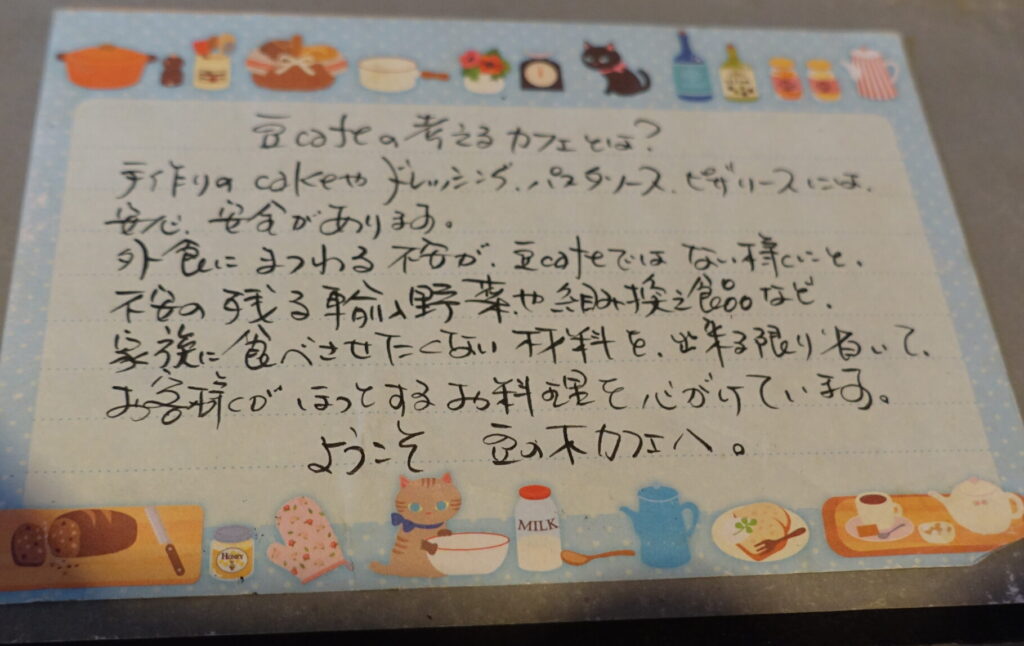 豆cafeの考えるカフェとは?
手作りのcakeやドレッシング、パスタソース、ピザソースには、
安心、安全があります。
外食にまつわる不安が、豆cafeではない様にと、
不安の残る輸入野菜や組み換え食品など、
家族に食べさせたくない材料を、出来る限り省いて、
お客様がほっとするお料理を心がけています。
ようこそ 豆の木カフェへ。
HONEY
MILK